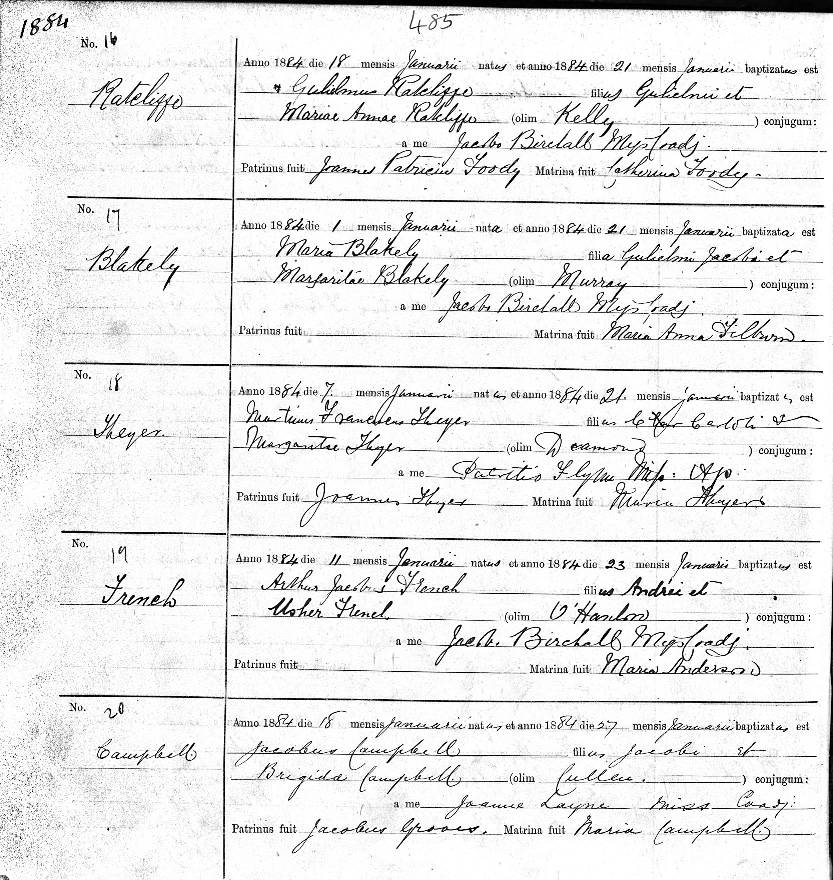 1884
485
No. 16
Ratcliffe
Anno 1884 die 18 mensis Januarii natus et anno 1884 die 21 mensis Januarii baptizatus est
Gulielmus Ratcliffe filius Gulielmi et
Mariae Annae Ratcliffe (olim Kelly ) conjugum:
a me Jacobo Birchall Mijs Coadj.
Patrinus fuit Joannes Patricius Foody Matrina fuit Catherina Foody.
No. 17
Blakely
Anno 1884 die 1 mensis Januarii nata et anno 1884 die 21 mensis Januarii baptizata est
Maria Blakely filia Gulielmi Jacobi et
Margaritae Blakely (olim Murray ) conjugum:
a me Jacobo Birchall Mijs Coadj.
Patrinus fuit Matrina fuit Maria Anna
No. 18
Theyer.
Anno 1884 die 7. mensis Januarii natus et anno 1884 die 21. mensis Januarii baptizatus est
Martinus Franciscus Theyer filius Caroli &
Margaritae Theyer (olim ) conjugum:
a me Patritio Flynn Miss: Ap:
Patrinus fuit Joannes Theyer Matrina fuit Maria Theyer
No. 19
French
Anno 1884 die 11 mensis Januarii natus et anno 1884 die 23 mensis Januarii baptizatus est
Arthur Jacobus French filius Andrei et
Esther French (olim O'Hanlon ) conjugum:
a me Jacobo Birchall Mijs Coadj.
Patrinus fuit Matrina fuit Maria Anderson
No. 20
Campbell
Anno 1884 die 18 mensis Januarii natus et anno 1884 die 27 mensis Januarii baptizatus est
Jacobus Campbell filius Jacobi et
Brigidae Campbell (olim Cullen. ) conjugum:
a me Joanne Layne Miss Coadj:
Patrinus fuit Jacobus Groves. Matrina fuit Maria Campbell